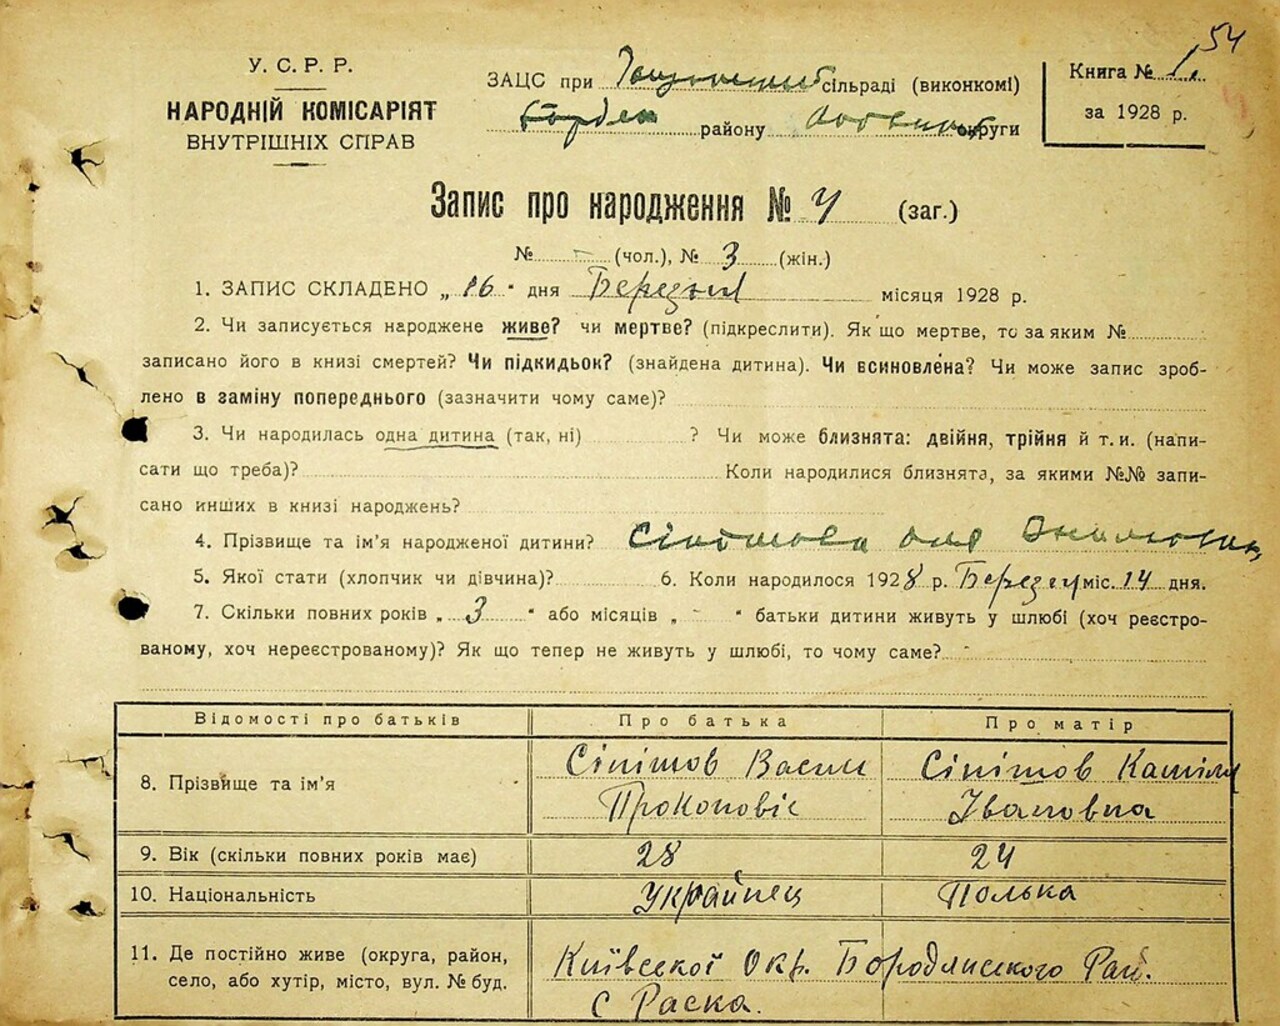 54
У. С. Р. Р.
НАРОДНІЙ КОМІСАРІЯТ
ВНУТРІШНІХ СПРАВ
ЗАЦС при сільраді (виконкомі)
району округи
Книга № 1.
за 1928 р.
Запис про народження № 4 (заг.)
№ - (чол.), № 3 (жін.)
1. ЗАПИС СКЛАДЕНО „ 16 " дня Березня місяця 1928 р.
2. Чи записується народжене живе? чи мертве? (підкреслити). Як що мертве, то за яким №
записано його в книзі смертей? Чи підкидьок? (знайдена дитина). Чи всиновлена? Чи може запис зроб-
лено в заміну попереднього (зазначити чому саме)?
3. Чи народилась одна дитина (так, ні) ? Чи може близнята: двійня, трійня й т. и. (напи-
сати що треба)? Коли народилися близнята, за якими №№ запи-
сано инших в книзі народжень?
4. Прізвище та ім'я народженої дитини?
5. Якої стати (хлопчик чи дівчина)? 6. Коли народилося 1928 р. Березня міс. 14 дня.
7. Скільки повних років „ 3 " або місяців „ - " батьки дитини живуть у шлюбі (хоч реєстро-
ваному, хоч нереєстрованому)? Як що тепер не живуть у шлюбі, то чому саме?
Відомості про батьків Про батька Про матір
8. Прізвище та ім'я Сінішов Васил Сінішов
Прокоповіс Івановна
9. Вік (скільки повних років має) 28 24
10. Національність Українец Полька
11. Де постійно живе (округа, район,
село, або хутір, місто, вул. № буд.
Київської Окр. Бородянського Рай.
с Раска.